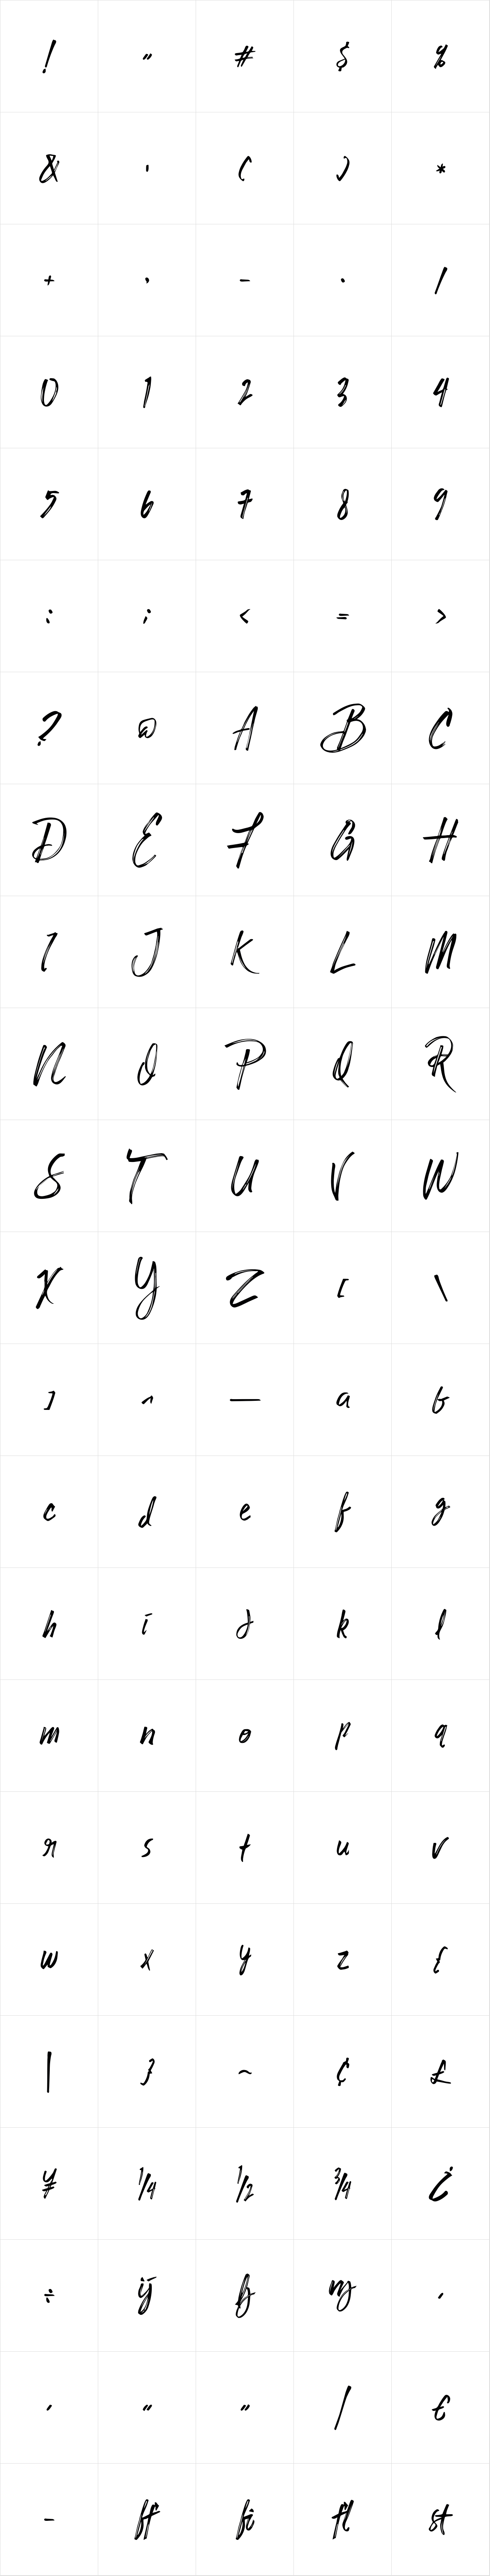 ! " # $ %
& ' ( ) *
+ , - . /
0 1 2 3 4
5 6 7 8 9
: ; < = >
? @ A B C
D E F G H
I J K L M
N O P Q R
S T U V W
X Y Z [ \
] ^ _ a b
c d e f g
h i j k l
m n o p q
r s t u v
w x y z {
| } ~ ¢ £
¥ ¼ ½ ¾ ¿
÷ ij
€
- ff fi fl st